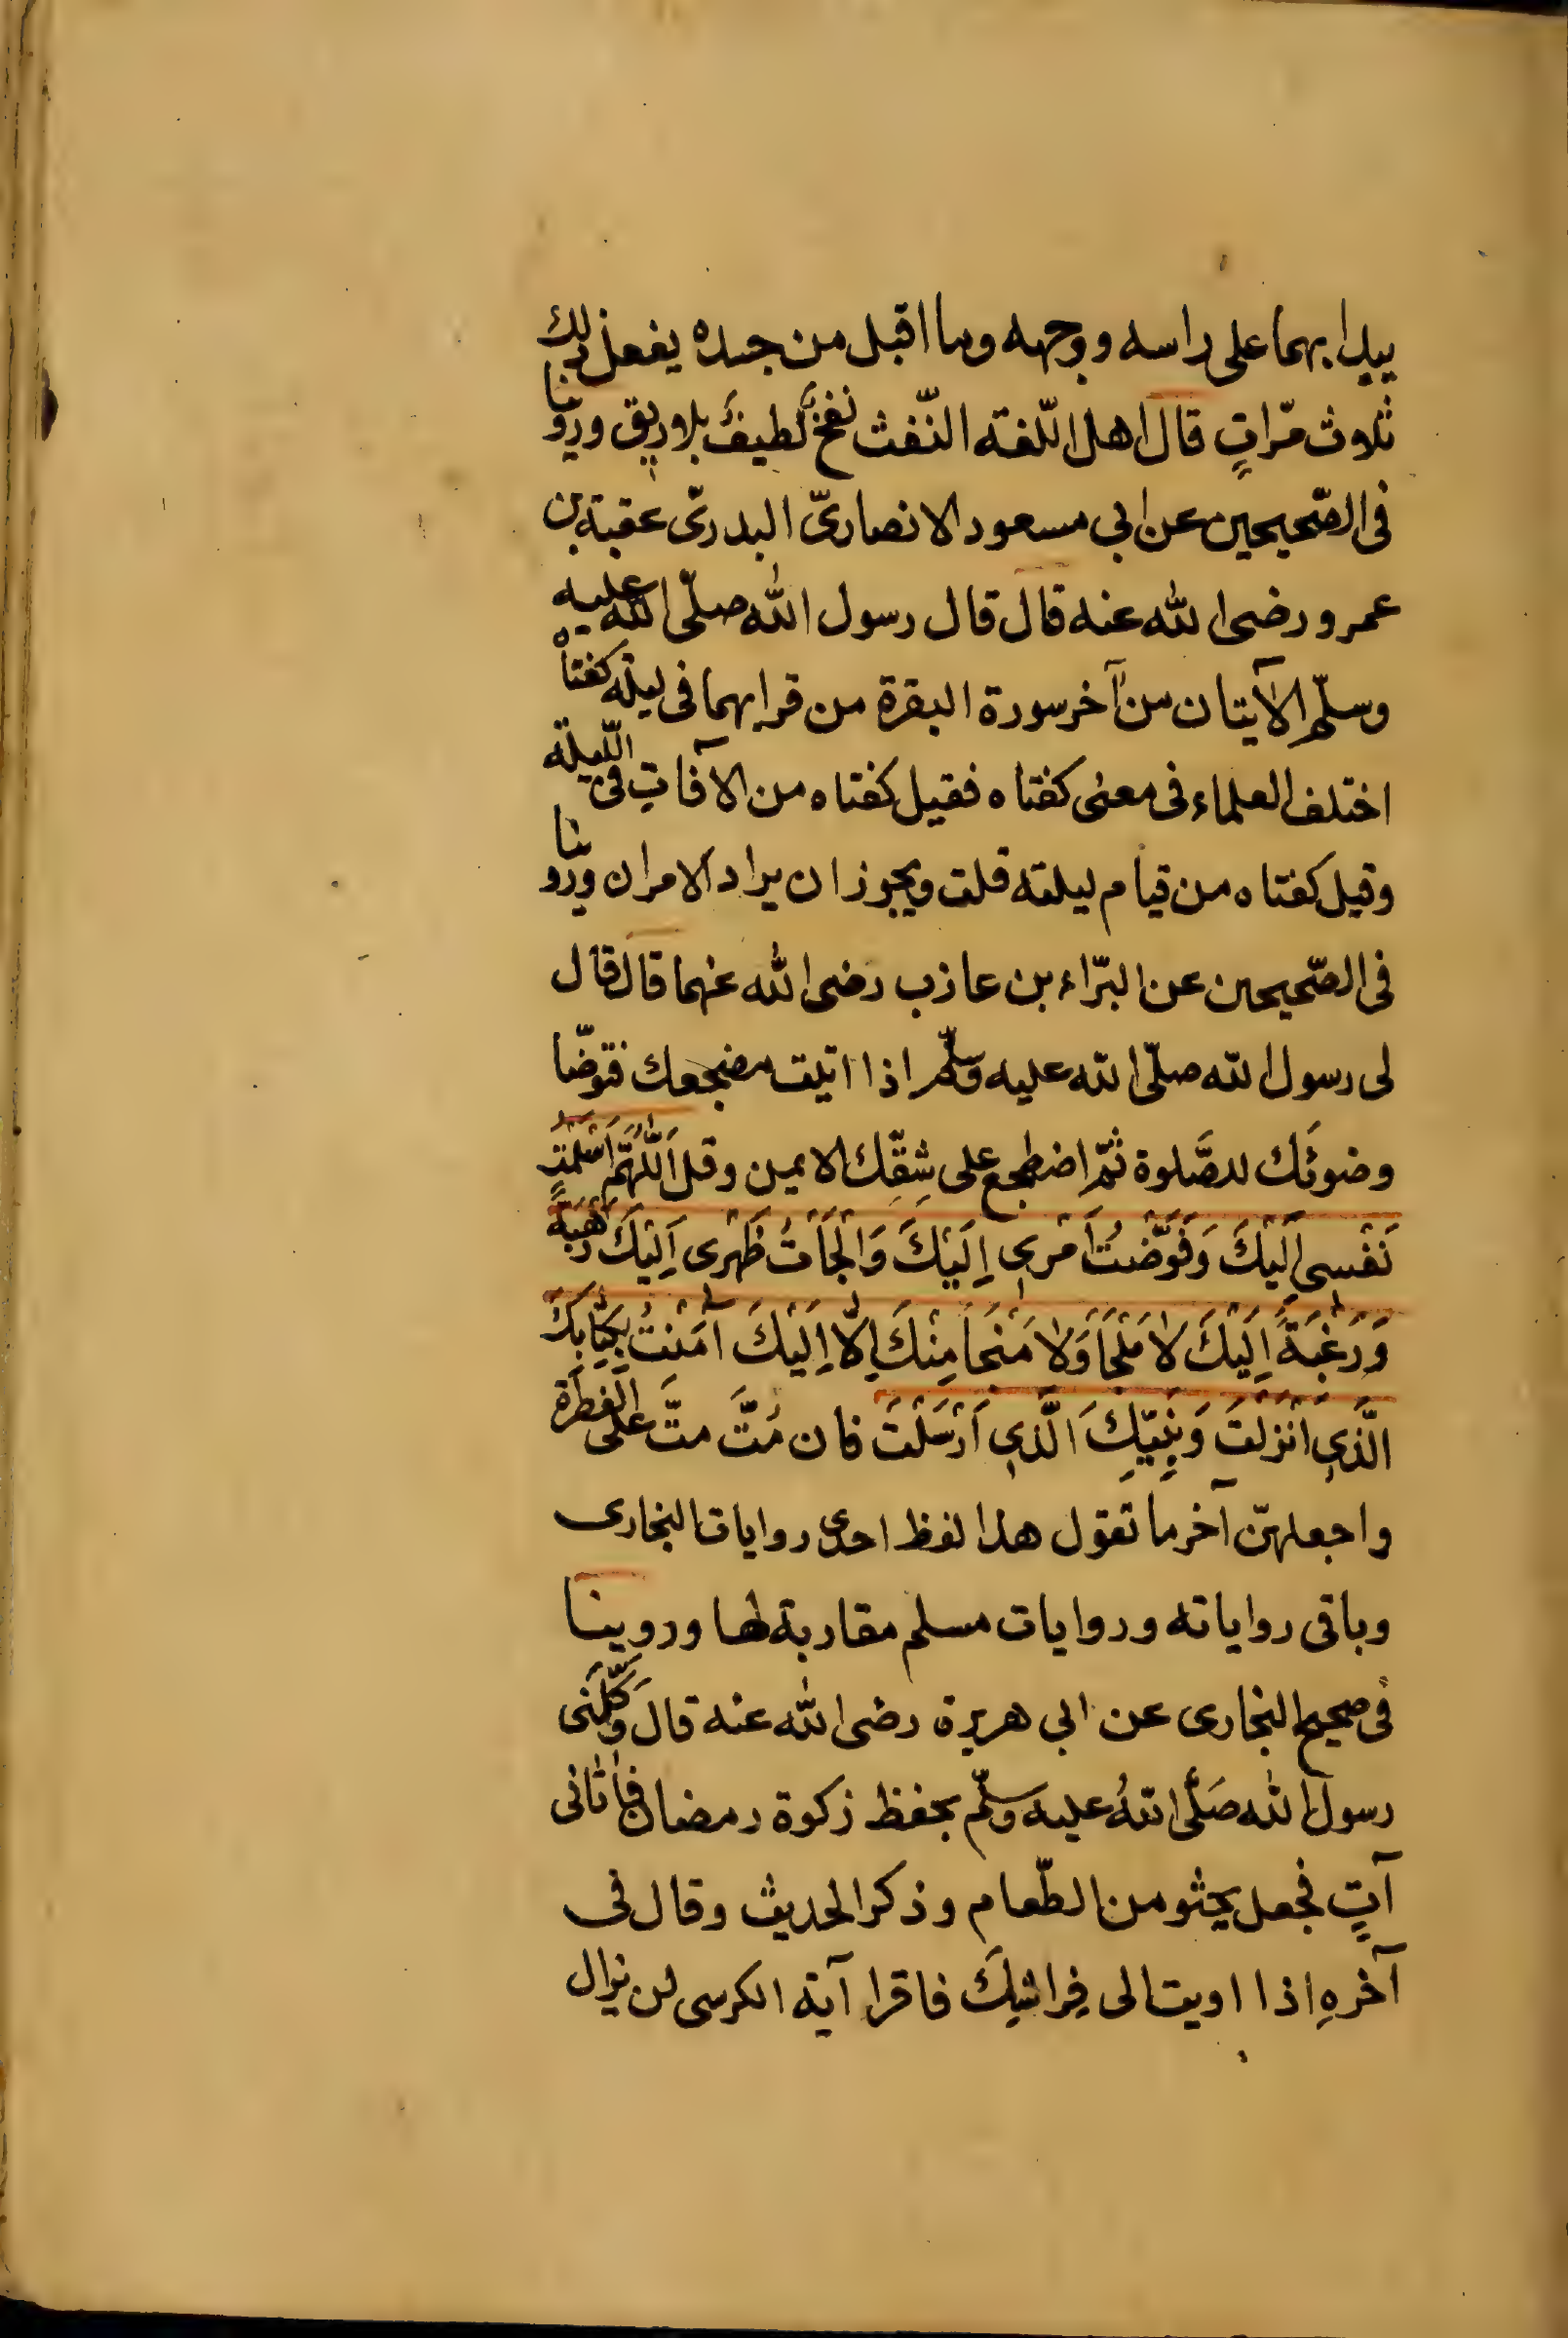 يبدا بهما على راسه ووجهه وما اقبل من جسده يفعل ذلك
ثلاوث مّراتٍ قال اهل اللّغته النّفث نفخٌ لطيفٌ بلا ريق وروينا
فى الصّحيحين عن ابي مسعود الانصاريّ البدريّ عقبة بن
عمرو رضى الله عنه قال قال رسول الله صلّى الله عليه
وسلّم الآيتان من آخر سورة البقرة من قرا بهما فى ليلة كفتاه
اختلف العلماء فى معنى كفتاه فقيل كفتاه من الآفاتِ فى اللّيلة
وقيل كفتاه من قيام ليلته قلت ويجوز ان يراد الامران وروينا
فى الصّحيحين عن البرّاء بن عازب رضى الله عنهما قال قال
لى رسول الله صلّى الله عليه وسلّم اذا اتيت مضجعك فتوضّا
وضوئَك للصَّلوة ثمّ اضطجع على شِقِّك الايمين وقل اَللّٰهُمَّ اَسْلَمْتُ
نَفْسى اِلَيْكَ وَفَوَّضْتُ اَمْرى اِلَيْكَ وَاَلْجَأتُ ظَهْرى اِلَيْكَ رَهْبَةً
وَرَغْبَةً اِلَيْكَ لاٰ مَلْجَأَ وَلاٰ مَنْجَأ مِنْكَ اِلّا اِلَيْكَ آمَنْتُ بِكِتَابِكَ
الَّذى اَنْزَلْتَ وَنَبِيِّكَ الَّذى اَرْسَلْتَ فان مُتَّ متّ على الفطرة
واجعلهنّ آخر ما تقول هذا لفظ احدى روايات البخارى
وباقى رواياته وروايات مسلم مقاربة لها وروينا
فى صحيح البخارى عن ابي هريرة رضى الله عنه قال وَكَّلَنى
رسول الله صَلَّى اللهُ عليه وسلّم بحفظ زكوة رمضان فاَتانى
آتٍ فجعل يحثو من الطّعام وذكر الحديث وقال فى
آخرهِ اذا اويت الى فِراشِكَ فاقرا آية الكرسى لن يزال